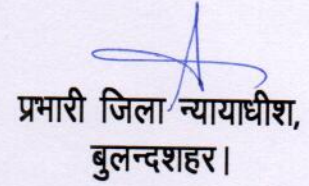 प्रभारी जिला न्यायाधीश,
बुलन्दशहर।